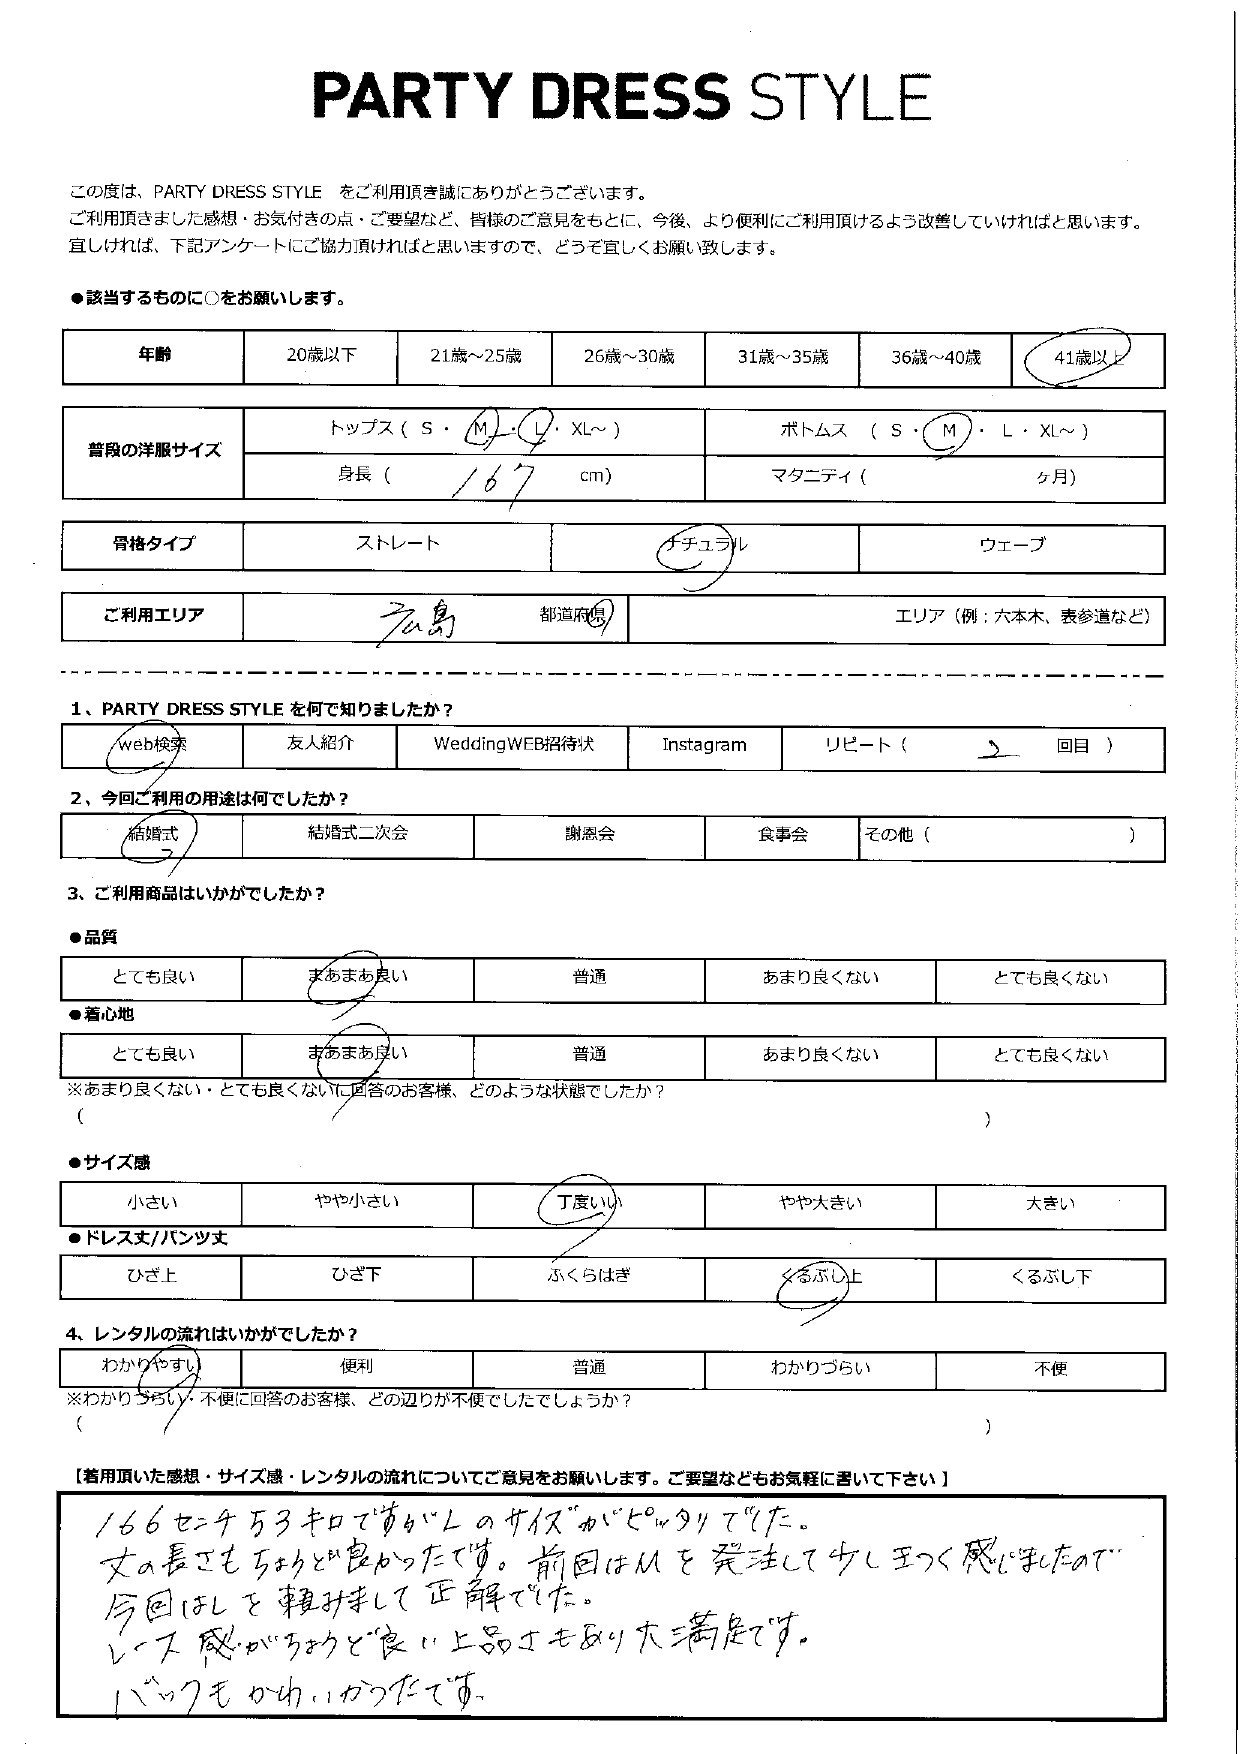 PARTY DRESS STYLE
この度は、PARTY DRESS STYLE をご利用頂き誠にありがとうございます。
ご利用頂きました感想・お気付きの点・ご要望など、皆様のご意見をもとに、今後、より便利にご利用頂けるよう改善していければと思います。
宜しければ、下記アンケートにご協力頂ければと思いますので、どうぞ宜しくお願い致します。
●該当するものに○をお願いします。
年齢 20歳以下 21歳～25歳 26歳～30歳 31歳～35歳 36歳～40歳 41歳以上
普段の洋服サイズ トップス ( S ・ M ・ L ・ XL～ ) ボトムス ( S ・ M ・ L ・ XL～ )
身長 ( 167 cm) マタニティ ( ヶ月)
骨格タイプ ストレート ナチュラル ウェーブ
ご利用エリア 広島 都道府県 エリア（例：六本木、表参道など）
1、PARTY DRESS STYLE を何で知りましたか？
web検索 友人紹介 WeddingWEB招待状 Instagram リピート ( 2 回目 )
2、今回ご利用の用途は何でしたか？
結婚式 結婚式二次会 謝恩会 食事会 その他 ( )
3、ご利用商品はいかがでしたか？
●品質
とても良い まあまあ良い 普通 あまり良くない とても良くない
●着心地
とても良い まあまあ良い 普通 あまり良くない とても良くない
※あまり良くない・とても良くないに回答のお客様、どのような状態でしたか？
( )
●サイズ感
小さい やや小さい 丁度いい やや大きい 大きい
●ドレス丈/パンツ丈
ひざ上 ひざ下 ふくらはぎ くるぶし上 くるぶし下
4、レンタルの流れはいかがでしたか？
わかりやすい 便利 普通 わかりづらい 不便
※わかりづらい・不便に回答のお客様、どの辺りが不便でしたでしょうか？
( )
【着用頂いた感想・サイズ感・レンタルの流れについてご意見をお願いします。ご要望などもお気軽に書いて下さい 】
166センチ53キロですがLのサイズがピッタリでした。
丈の長さもちょうど良かったです。前回はMを発注して少しきつく感じましたので
今回はLを頼みまして正解でした。
レース感がちょうど良い上品さもあり大満足です。
バックもかわいかったです。